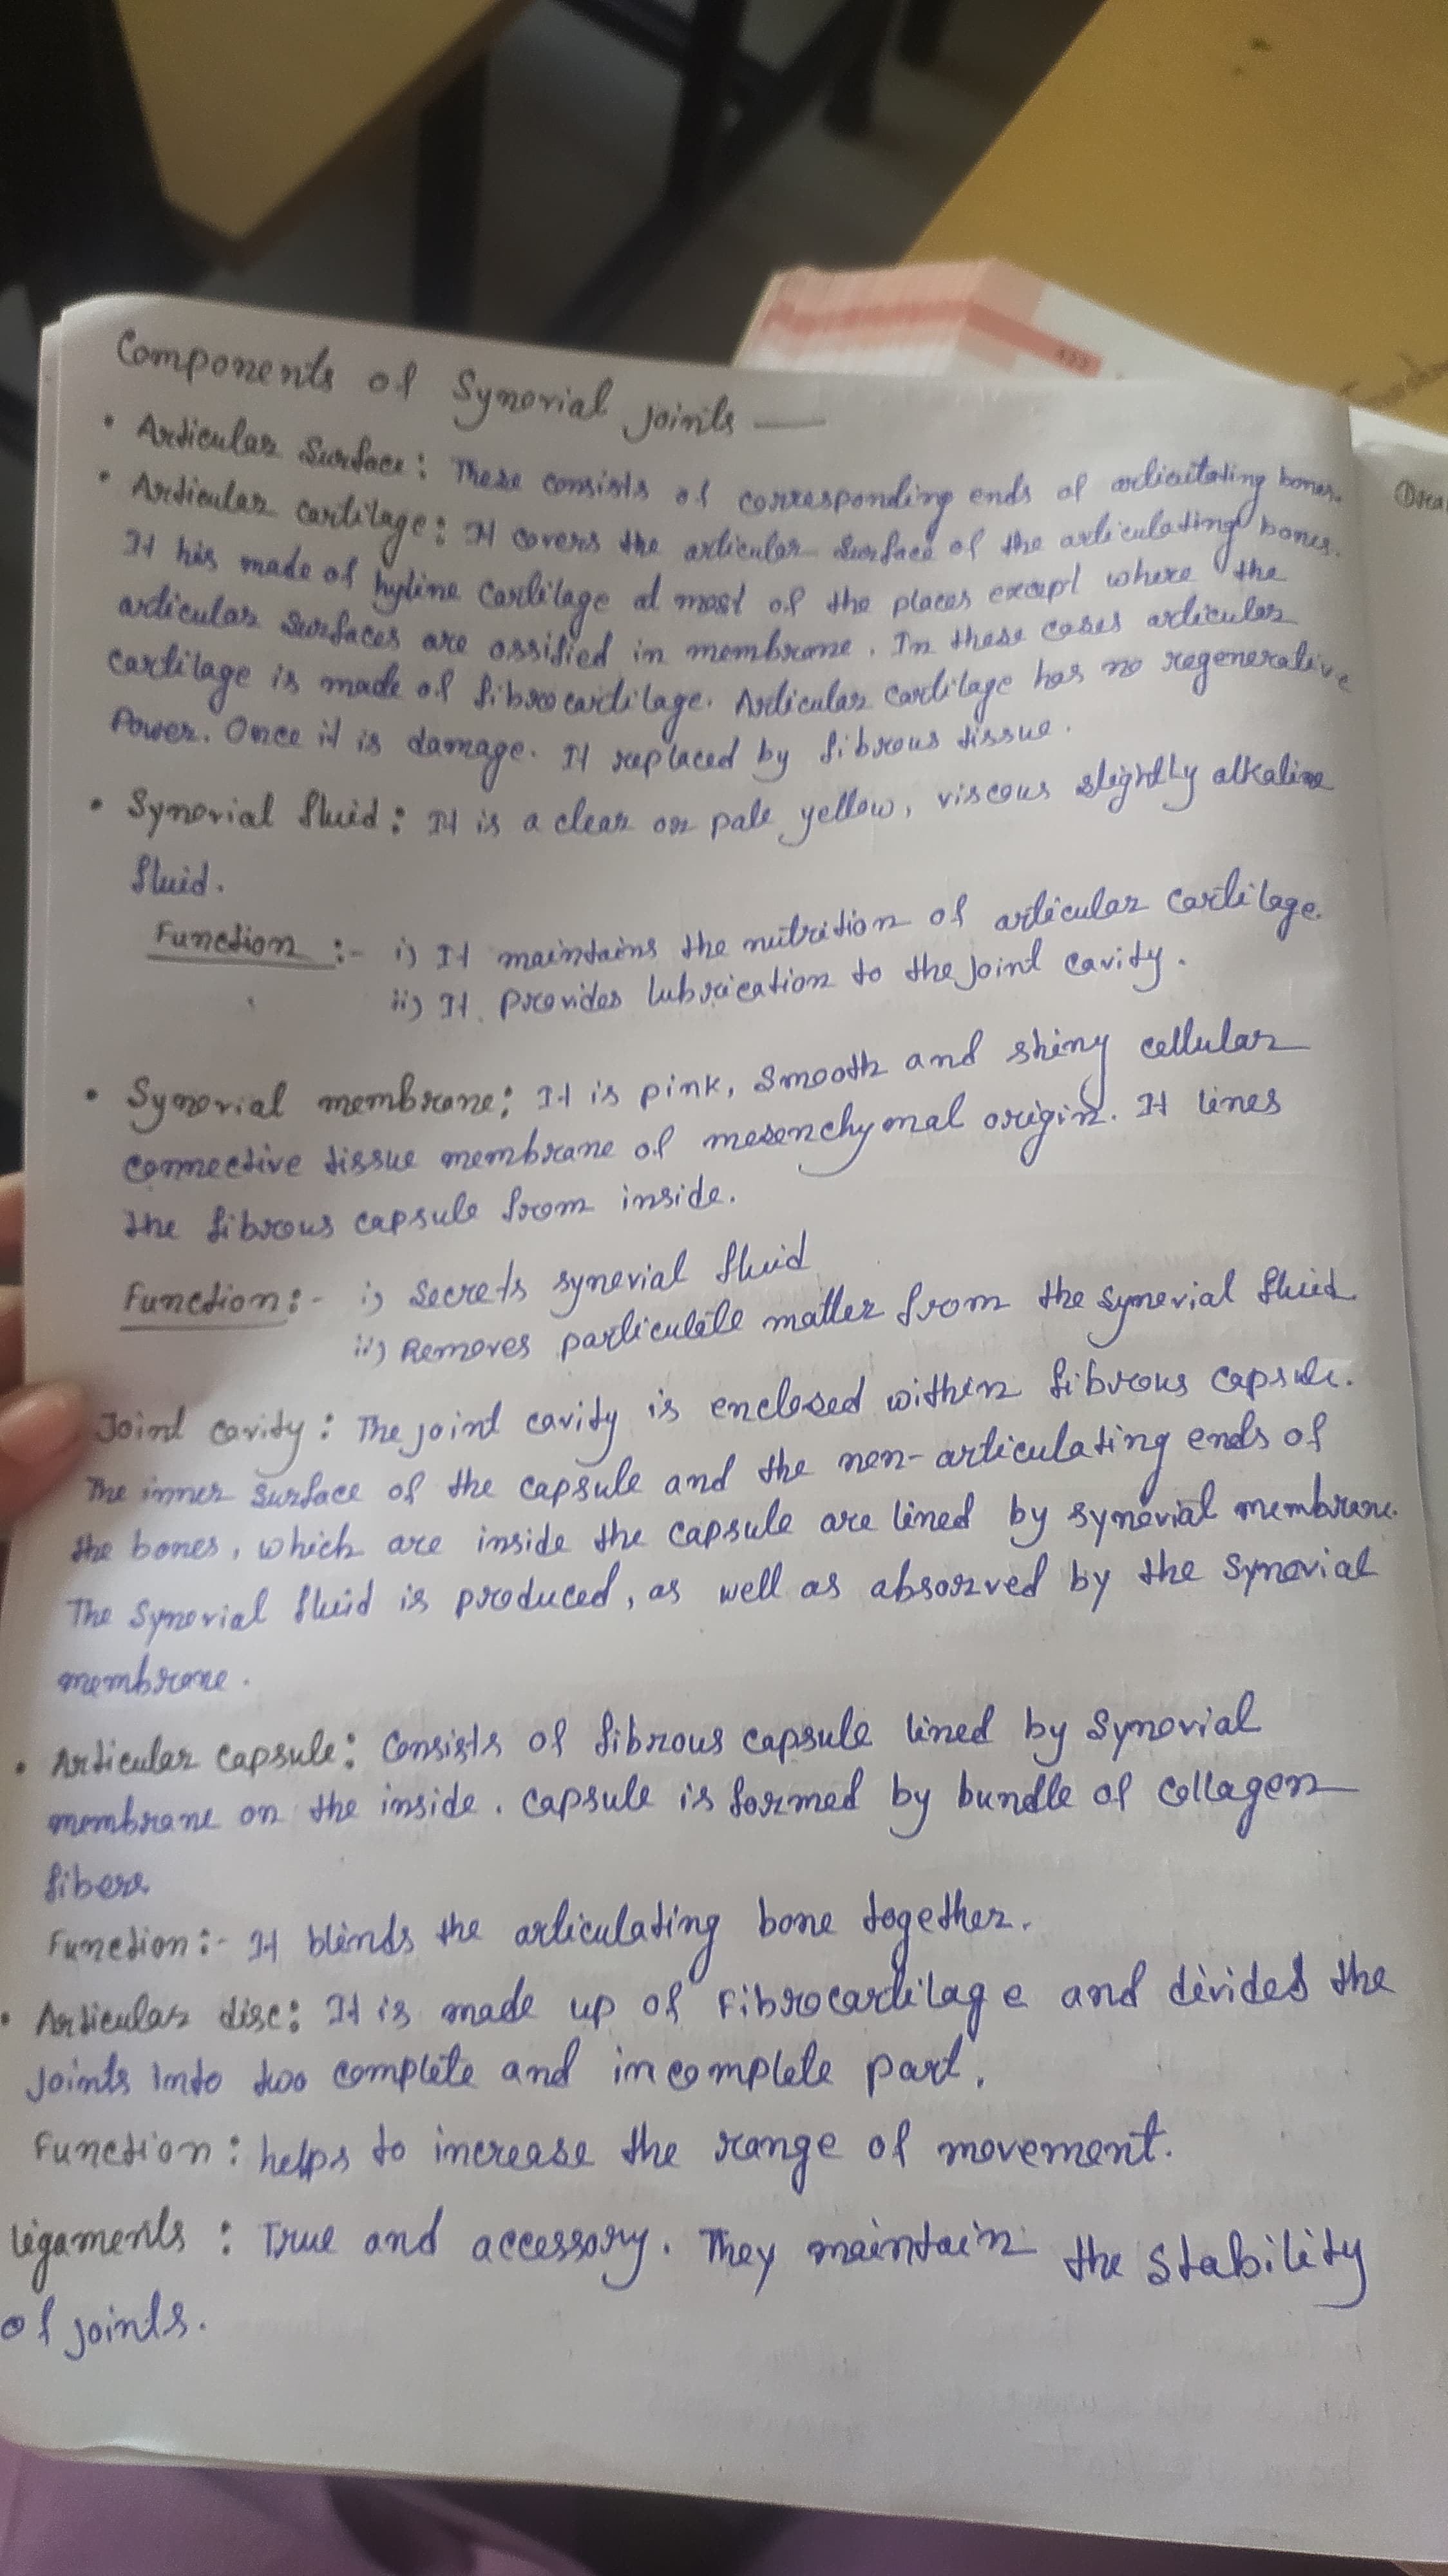 Components of Synovial joints —
• Articular Surface: These consists of corresponding ends of articulating bones.
• Articular cartilage: It covers the articular surface of the articulating bones.
It his made of hyline cartilage at most of the places except where the
articular surfaces are ossified in membrane. In these cases articular
cartilage is made of fibrocartilage. Articular cartilage has no regenerative
Power. Once it is damage. It replaced by fibrous tissue.
• Synovial fluid: It is a clear or pale yellow, viscous slightly alkaline
fluid.
Function :- i) It maintains the nutrition of articular cartilage.
ii) It provides lubrication to the joint cavity.
• Synovial membrane: It is pink, smooth and shiny cellular
connective tissue membrane of mesenchymal origin. It lines
the fibrous capsule from inside.
Function :- i) Secrets synovial fluid
ii) Removes particulate matter from the synovial fluid
Joint cavity: The joint cavity is enclosed within fibrous capsule.
The inner surface of the capsule and the non-articulating ends of
the bones, which are inside the capsule are lined by synovial membrane.
The synovial fluid is produced, as well as absorved by the synovial
membrane.
• Articular capsule: Consists of fibrous capsule lined by Synovial
membrane on the inside. Capsule is formed by bundle of collagen
fibers
Function :- It blinds the articulating bone together.
• Articular disc: It is made up of Fibrocartilage and divided the
joints into two complete and incomplete part.
Function : helps to increase the range of movement.
Ligaments : True and accessory. They maintain the stability
of joints.